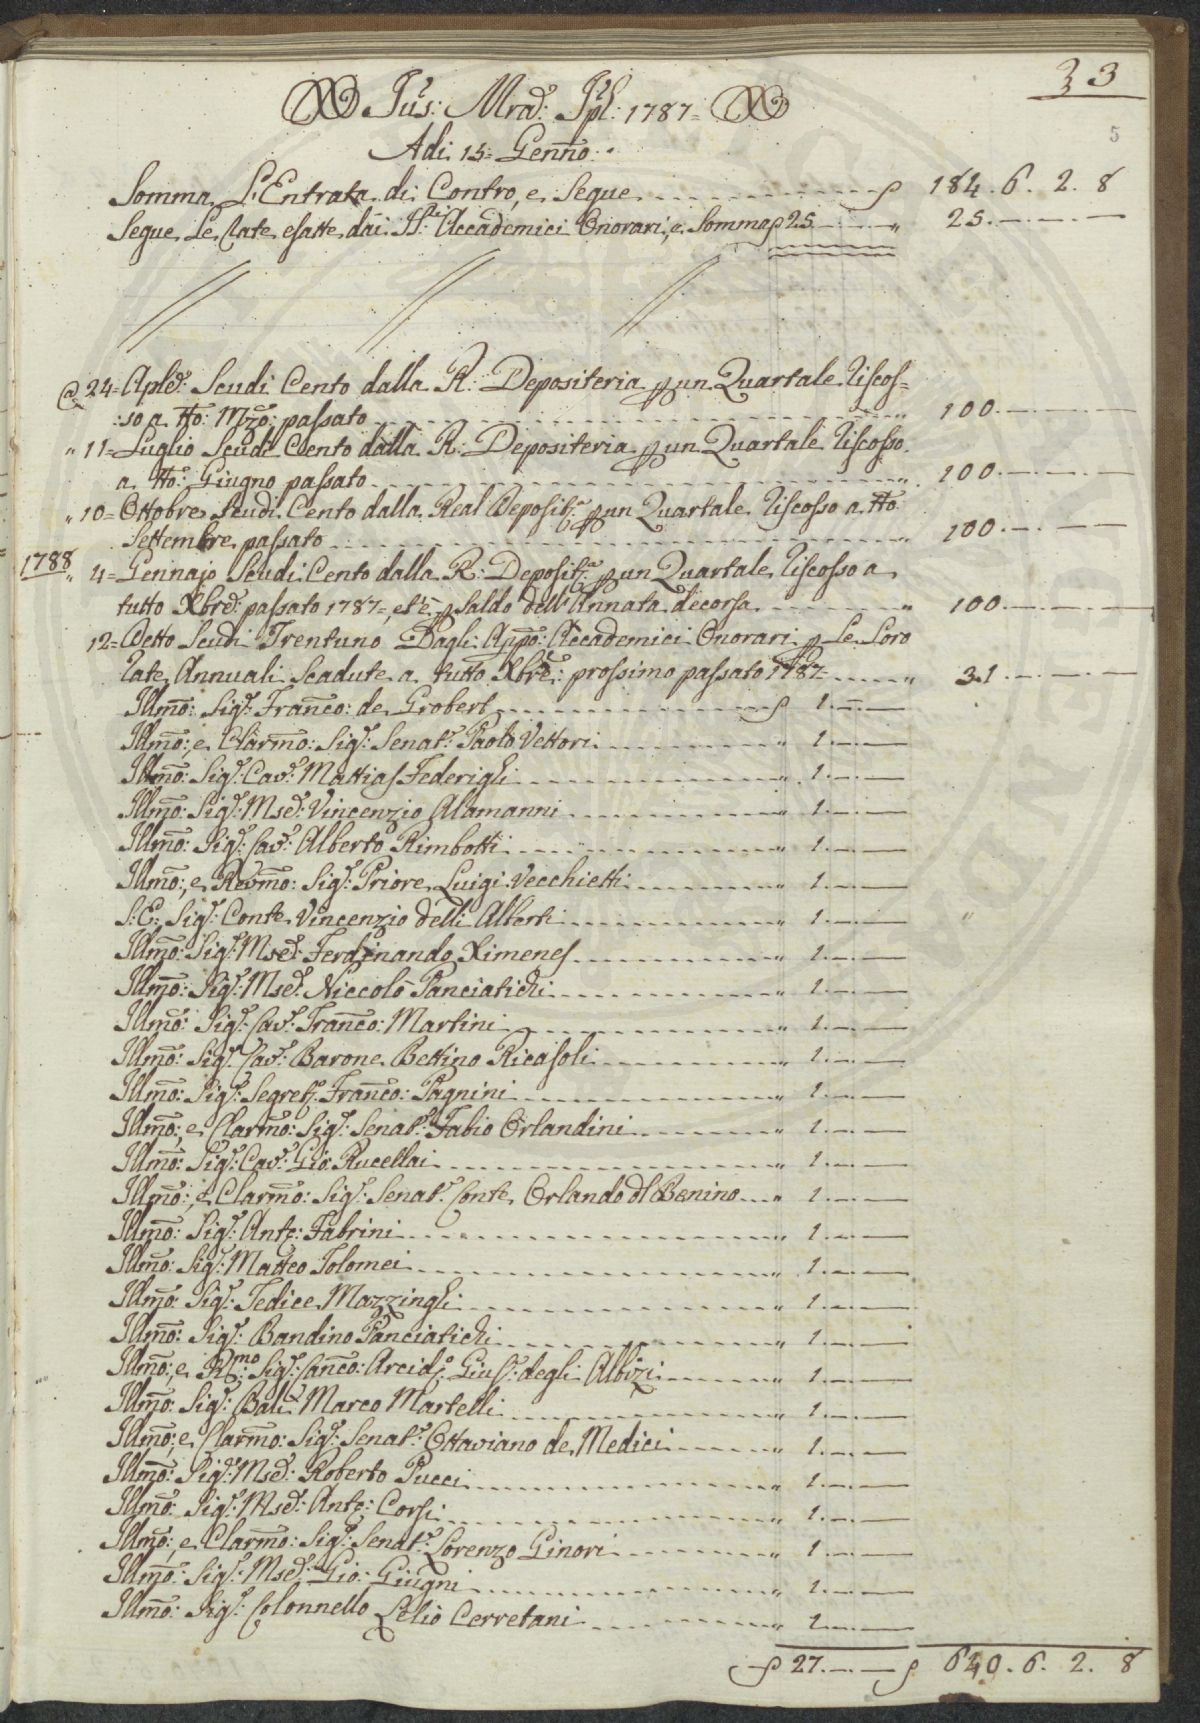 33
5
Jus: Mrad: Jpl: 1787=
Adi 15= Genño:
Somma L'Entrata di Contro, e Segue ƒ 184. 6. 2. 8
Segue Le Rate esatte dai SS:ri Accademici Onorari, e Somma ƒ 25 " 25.
@ 24= Aple: Scudi Cento dalla R: Depositeria p un Quartale Riscos=
:so a tto: Mzo: passato " 100.
" 11= Luglio Scudi Cento dalla R: Depositeria p un Quartale Riscosso
a tto: Giugno passato " 100.
" 10= Ottobre Scudi Cento dalla Real Deposit:a p un Quartale Riscosso a tto
Settembre passato " 100.
1788
" 4= Gennajo Scudi Cento dalla R: Deposit:a p un Quartale Riscosso a
tutto Xbre: passato 1787=, et è p saldo dell'Annata decorsa " 100.
12= Detto Scudi Trentuno Dagli Appo: Accademici Onorari p Le Loro
Rate Annuali Scadute a tutto Xbre: prossimo passato 1787= " 31.
Illmo: Sigr: Franco: de Grobert ƒ 1.
Illmo: e Clarmo: Sigr: Senatr: Paolo Vettori " 1.
Illmo: Sigr: Cavr: Mattias Federighi " 1.
Illmo: Sigr: Mse: Vincenzio Alamanni " 1.
Illmo: Sigr: Cavr: Alberto Rimbotti " 1.
Illmo: e Revmo: Sigr: Priore Luigi Vecchietti " 1.
S: E: Sigr: Conte Vincenzio delli Alberti " 1.
Illmo: Sigr: Mse: Ferdinando Ximenes " 1.
Illmo: Sigr: Mse: Niccolò Panciatichi " 1.
Illmo: Sigr: Cavr: Franco: Martini " 1.
Illmo: Sigr: Cavr: Barone Bettino Ricasoli " 1.
Illmo: Sigr: Segret: Franco: Pagnini " 1.
Illmo: e Clarmo: Sigr: Senatr: Fabio Orlandini " 1.
Illmo: Sigr: Cavr: Gio: Rucellai " 1.
Illmo: e Clarmo: Sigr: Senatr: Conte Orlando dl Benino " 1.
Illmo: Sigr: Anto: Fabrini " 1.
Illmo: Sigr: Matteo Tolomei " 1.
Illmo: Sigr: Tedice Mazzinghi " 1.
Illmo: Sigr: Bandino Panciatichi " 1.
Illmo: e Rmo: Sigr: Canco: Arcid: Gius: degli Albizi " 1.
Illmo: Sigr: Balì Marco Martelli " 1.
Illmo: e Clarmo: Sigr: Senatr: Ottaviano de Medici " 1.
Illmo: Sigr: Mse: Roberto Pucci " 1.
Illmo: Sigr: Mse: Anto: Corsi " 1.
Illmo: e Clarmo: Sigr: Senatr: Lorenzo Ginori " 1.
Illmo: Sigr: Mse: Gio: Giugni " 1.
Illmo: Sigr: Colonnello Lelio Cerretani " 1.
ƒ 27. ƒ 640. 6. 2. 8